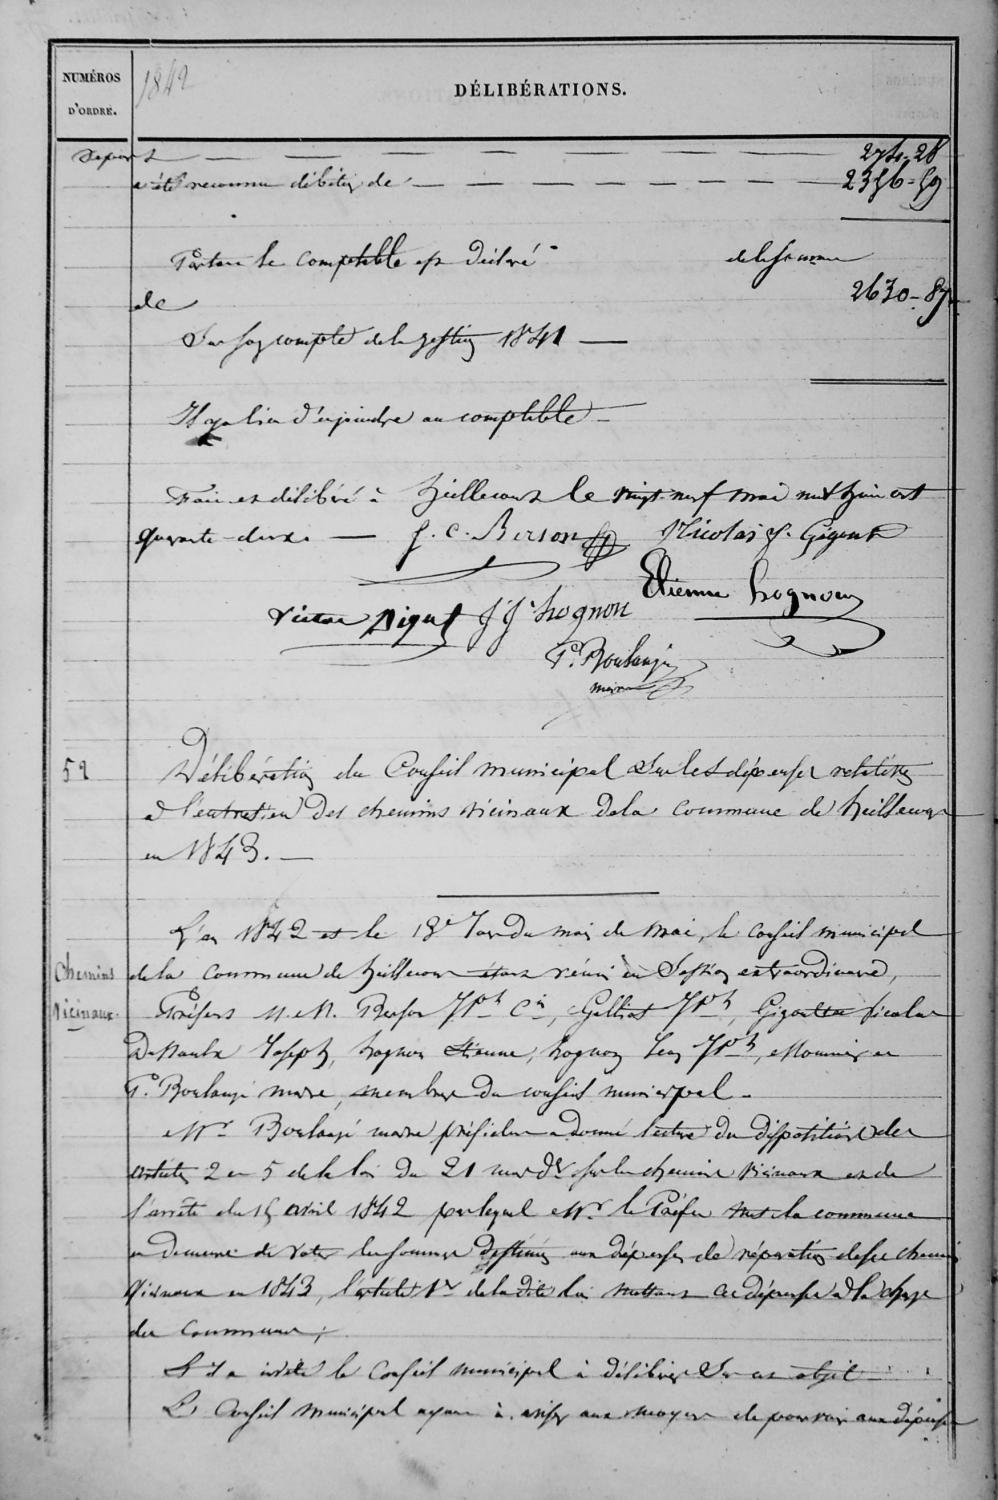 NUMÉROS
D'ORDRE.
1842
DÉLIBÉRATIONS.
Report 274-28
a été reconnu débiteur de 2356-59
Partant le comptable est Déclaré de la somme
de 2630-87
Sur son compte de la gestion 1841
Il y a lieu d'enjoindre au comptable
Fait et délibéré à heillecourt le vingt neuf mai mil huit cent
quarante-deux. J. C. Berson Nicolas f. Gigout
Etienne hognon
Victor Pigut J J h hognon
P. Boulangé
maire
52
Délibération du Conseil municipal sur les dépenses relatives
a l'entretien Des chemins vicinaux de la Commune de heillecourt
en 1843.
Chemins
Vicinaux.
L'an 1842 et le 18e Jour du mois de mai, le conseil municipal
de la Commune de heillecourt étant réuni en Session extraordinaire,
Présens M. M. Berson Jph Cn, Jph, Nicolas
Joseph, hognon Etienne, hognon Jph, et
P. Boulangé maire, membres du conseil municipal.
Mr Boulangé maire président a donné lecture du dispositions des
articles 2 et 5 de la loi du 21 mars des chemins vicinaux et de
l'arrêté du 15 avril 1842 par lequel Mr le Préfet met la commune
en demeure de voter les sommes destinées aux dépenses de réparation desdits chemins
vicinaux en 1843, l'article 1er de la dite loi mettant ces dépenses a la charge
des Communes;
Il a invité le Conseil municipal à délibérer Sur cet objet
Le Conseil municipal ayant à aviser aux moyens de pourvoir aux dépenses